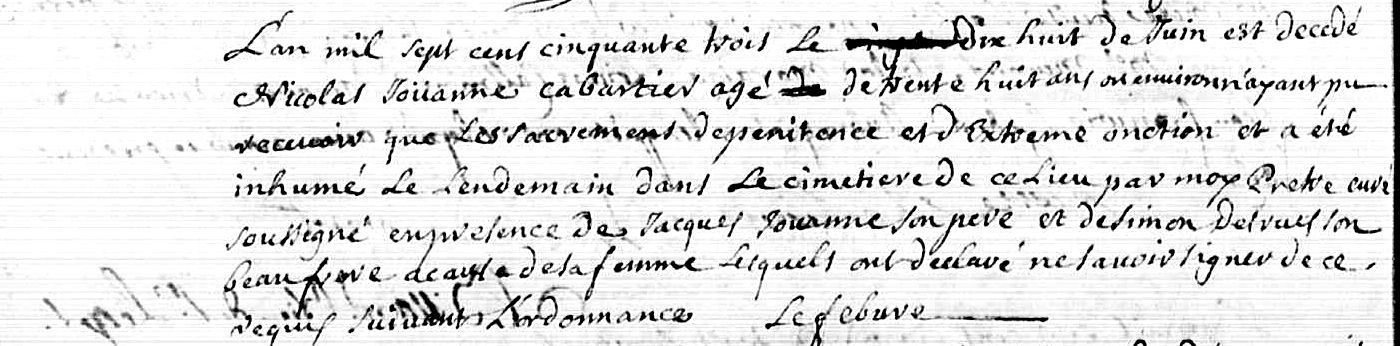 L'an mil sept cens cinquante trois le dix huit de Juin est decedé
Nicolas Joüanne cabartier agé de trente huit ans ou environ n'ayant pu
recevoir que Les sacremens de penitence et d'Extreme onction et a été
inhumé Le Lendemain dans Le cimetiere de ce Lieu par moy Pretre curé
soussigné en presence de Jacques Joüanne son pere et de simon Desrues son
beau frere a cause de sa femme Lesquels ont declaré ne savoir signer de ce
requis suivant L'ordonnance Lefebure